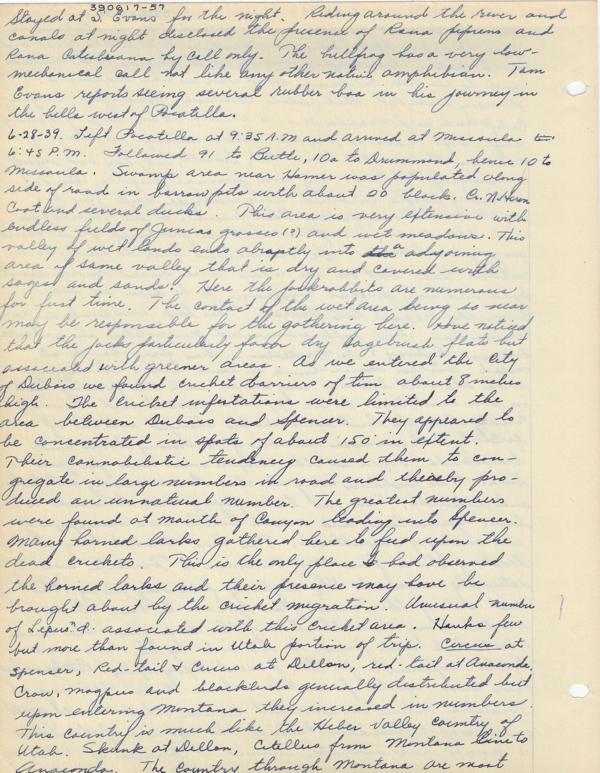 390617-57
Stayed at T. Evans for the night. Riding around the river and
canals at night disclosed the presence of Rana pipiens and
Rana Catesbeana by call only. The bullfrog has a very low-
mechanical call not like any other native amphibian. Tom
Evans reports seeing several rubber boa in his journey in
the hills west of Pocatello.
6-28-39. Left Pocatello at 9:35 A.M and arrived at Missoula
6:45 P.M. Followed 91 to Butte, 10a to Drummond, hence 10 to
Missoula. Swamp area near Hamer was populated along
side of road in barrow pits with about 20 black. Cr. N. Heron
Coot and several ducks. This area is very extensive with
endless fields of Juncus grasses (?) and wet meadows. This
valley of wet lands ends abruptly into a adjoining
area of same valley that is dry and covered with
sages and sands. Here the jackrabbits are numerous
for first time. The contact of the wet area being so near
may be responsible for the gathering here. Have noticed
that the jacks particularly favor dry sagebrush flats but
associated with greener areas. As we entered the City
of Dubois we found cricket barriers of tin about 8 inches
high. The cricket infestations were limited to the
area between Dubois and Spencer. They appeared to
be concentrated in spots of about 150' in extent.
Their cannobilistic tendency caused them to con-
gregate in large numbers in road and thereby pro-
duced an unnatural number. The greatest numbers
were found at mouth of Canyon leading into Spencer.
Many horned larks gathered here to feed upon the
dead crickets. This is the only place I had observed
the horned larks and their presence may have be
brought about by the cricket migration. Unusual number
of Lepus associated with this cricket area. Hawks few
but more than found in Utah portion of trip. Circus at
Spenser, Red-tail & Circus at Dillon, red-tail at Anaconda.
Crow, magpies and blackbirds generally distributed but
upon entering Montana they increased in numbers.
This country is much like the Heber Valley country of
Utah. Skunk at Dillon, Citellus from Montana line to
Anaconda. The country through Montana are most